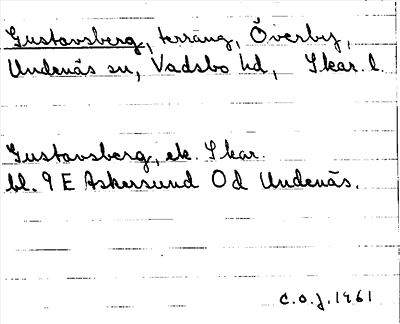 Gustavsberg, terräng, Överby,
Undenäs sn, Vadsbo hd, Skar. l.
Gustavsberg, ek. Skar.
bl. 9 E Askersund Od Undenäs.
C.O.J. 1961